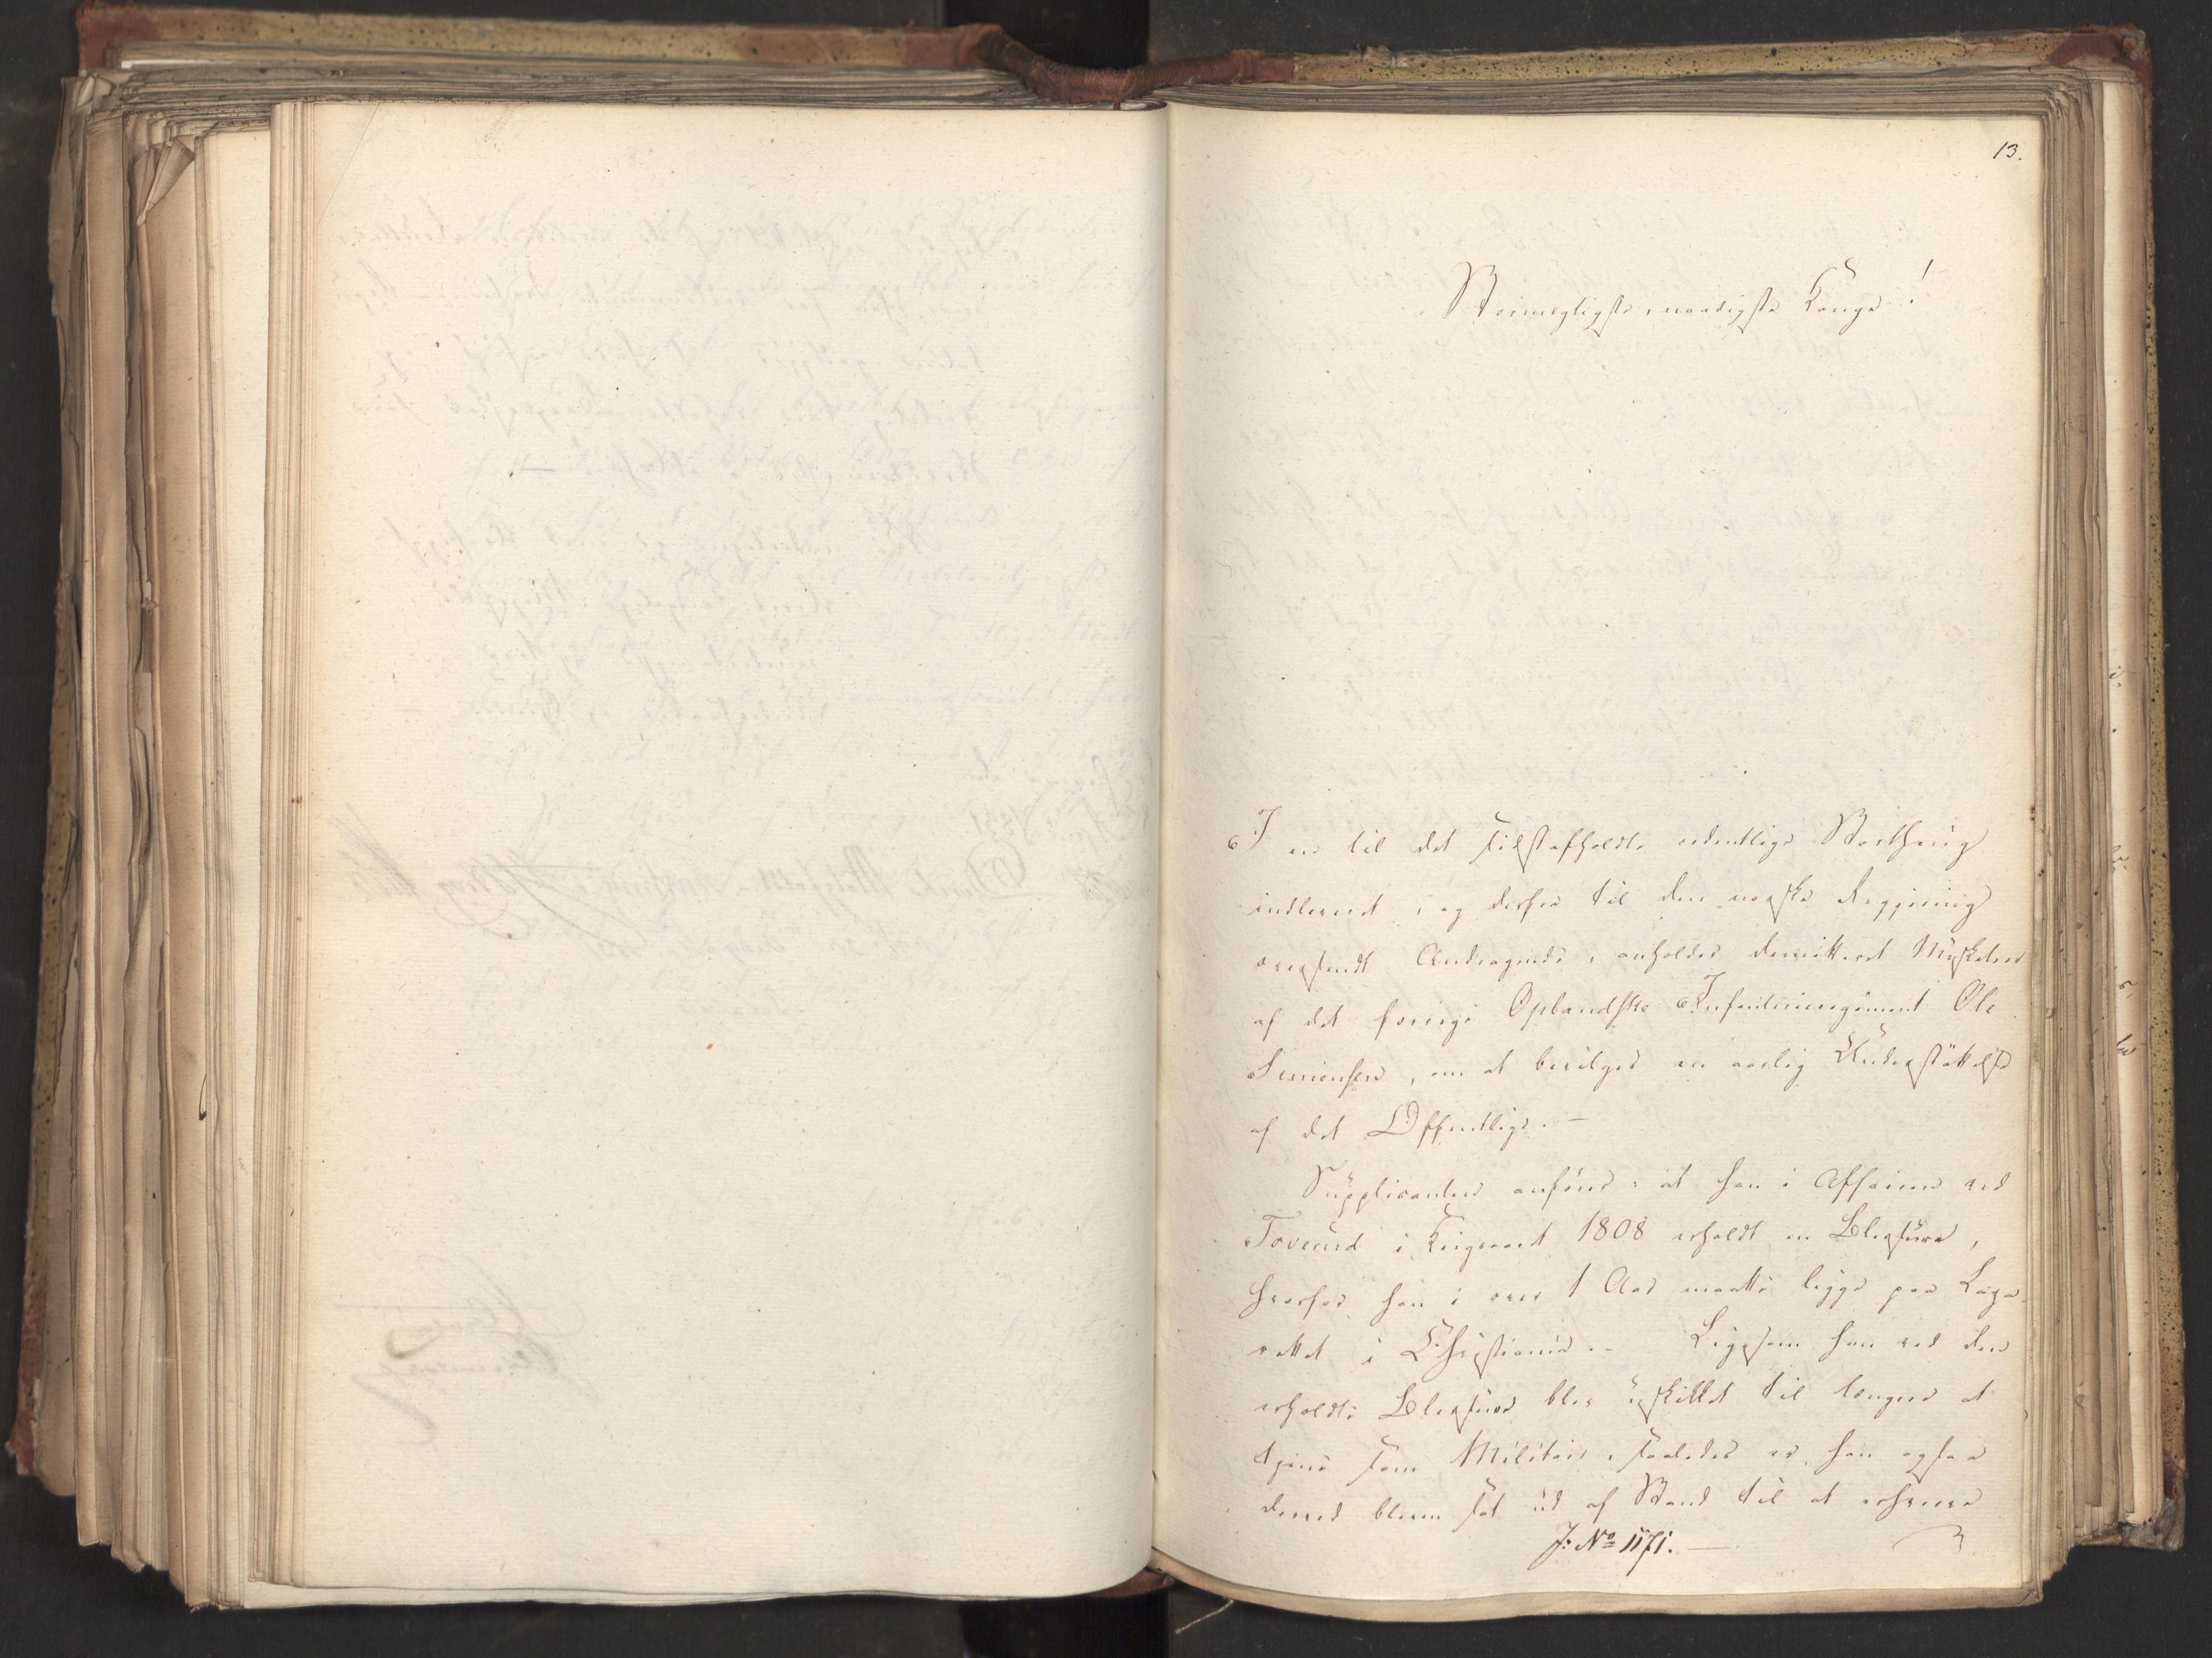 13.
Stormægtigste, naadigste Konge!
I en til det sidst afholdte ordentlige Storthing
indleveret, og derfra til den norske Regjering
oversendt Andragende, anholder demitteret Musketeer
af det forrige Oplandske Infanterieregiment Ole
Simensen, om at bevilges en aarlig Understöttelse
af det Offentlige. –
Supplicanten anfører: at han i Affairen ved
Toverud i Krigsaaret 1808 erholdt en Blessure,
hvorfor han i over 1 Aar maatte ligge paa Laza-
rettet i Christiania. – Ligesom han ved den
erholdte Blessure blev uskikket til længere at
tjene som Militair, saaledes er han ogsaa
derved bleven sat ud af Stand til at erhverve
J: No 1171. —